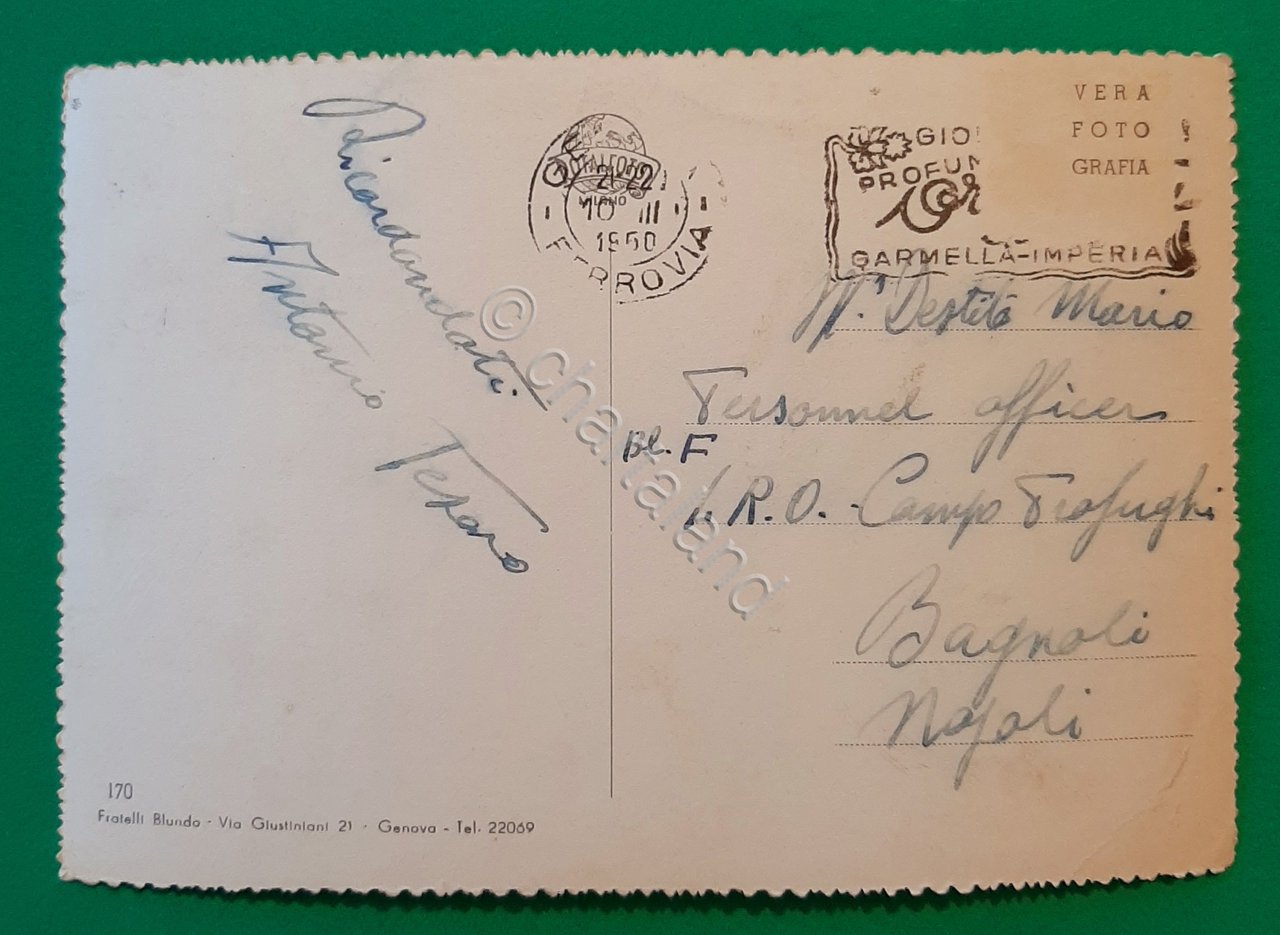 Ricordandoti
Antonio Tesoro
170
Fratelli Blundo - Via Giustiniani 21 - Genova - Tel. 22069
MILANO
21-22
10 III
1950
FERROVIA
GIO
PROFUM
GARMELLA-IMPERIA
VERA
FOTO
GRAFIA
Destito Mario
Personnel officer
Bl. F
I.R.O. - Campo Profughi
Bagnoli
Napoli
© chartaland